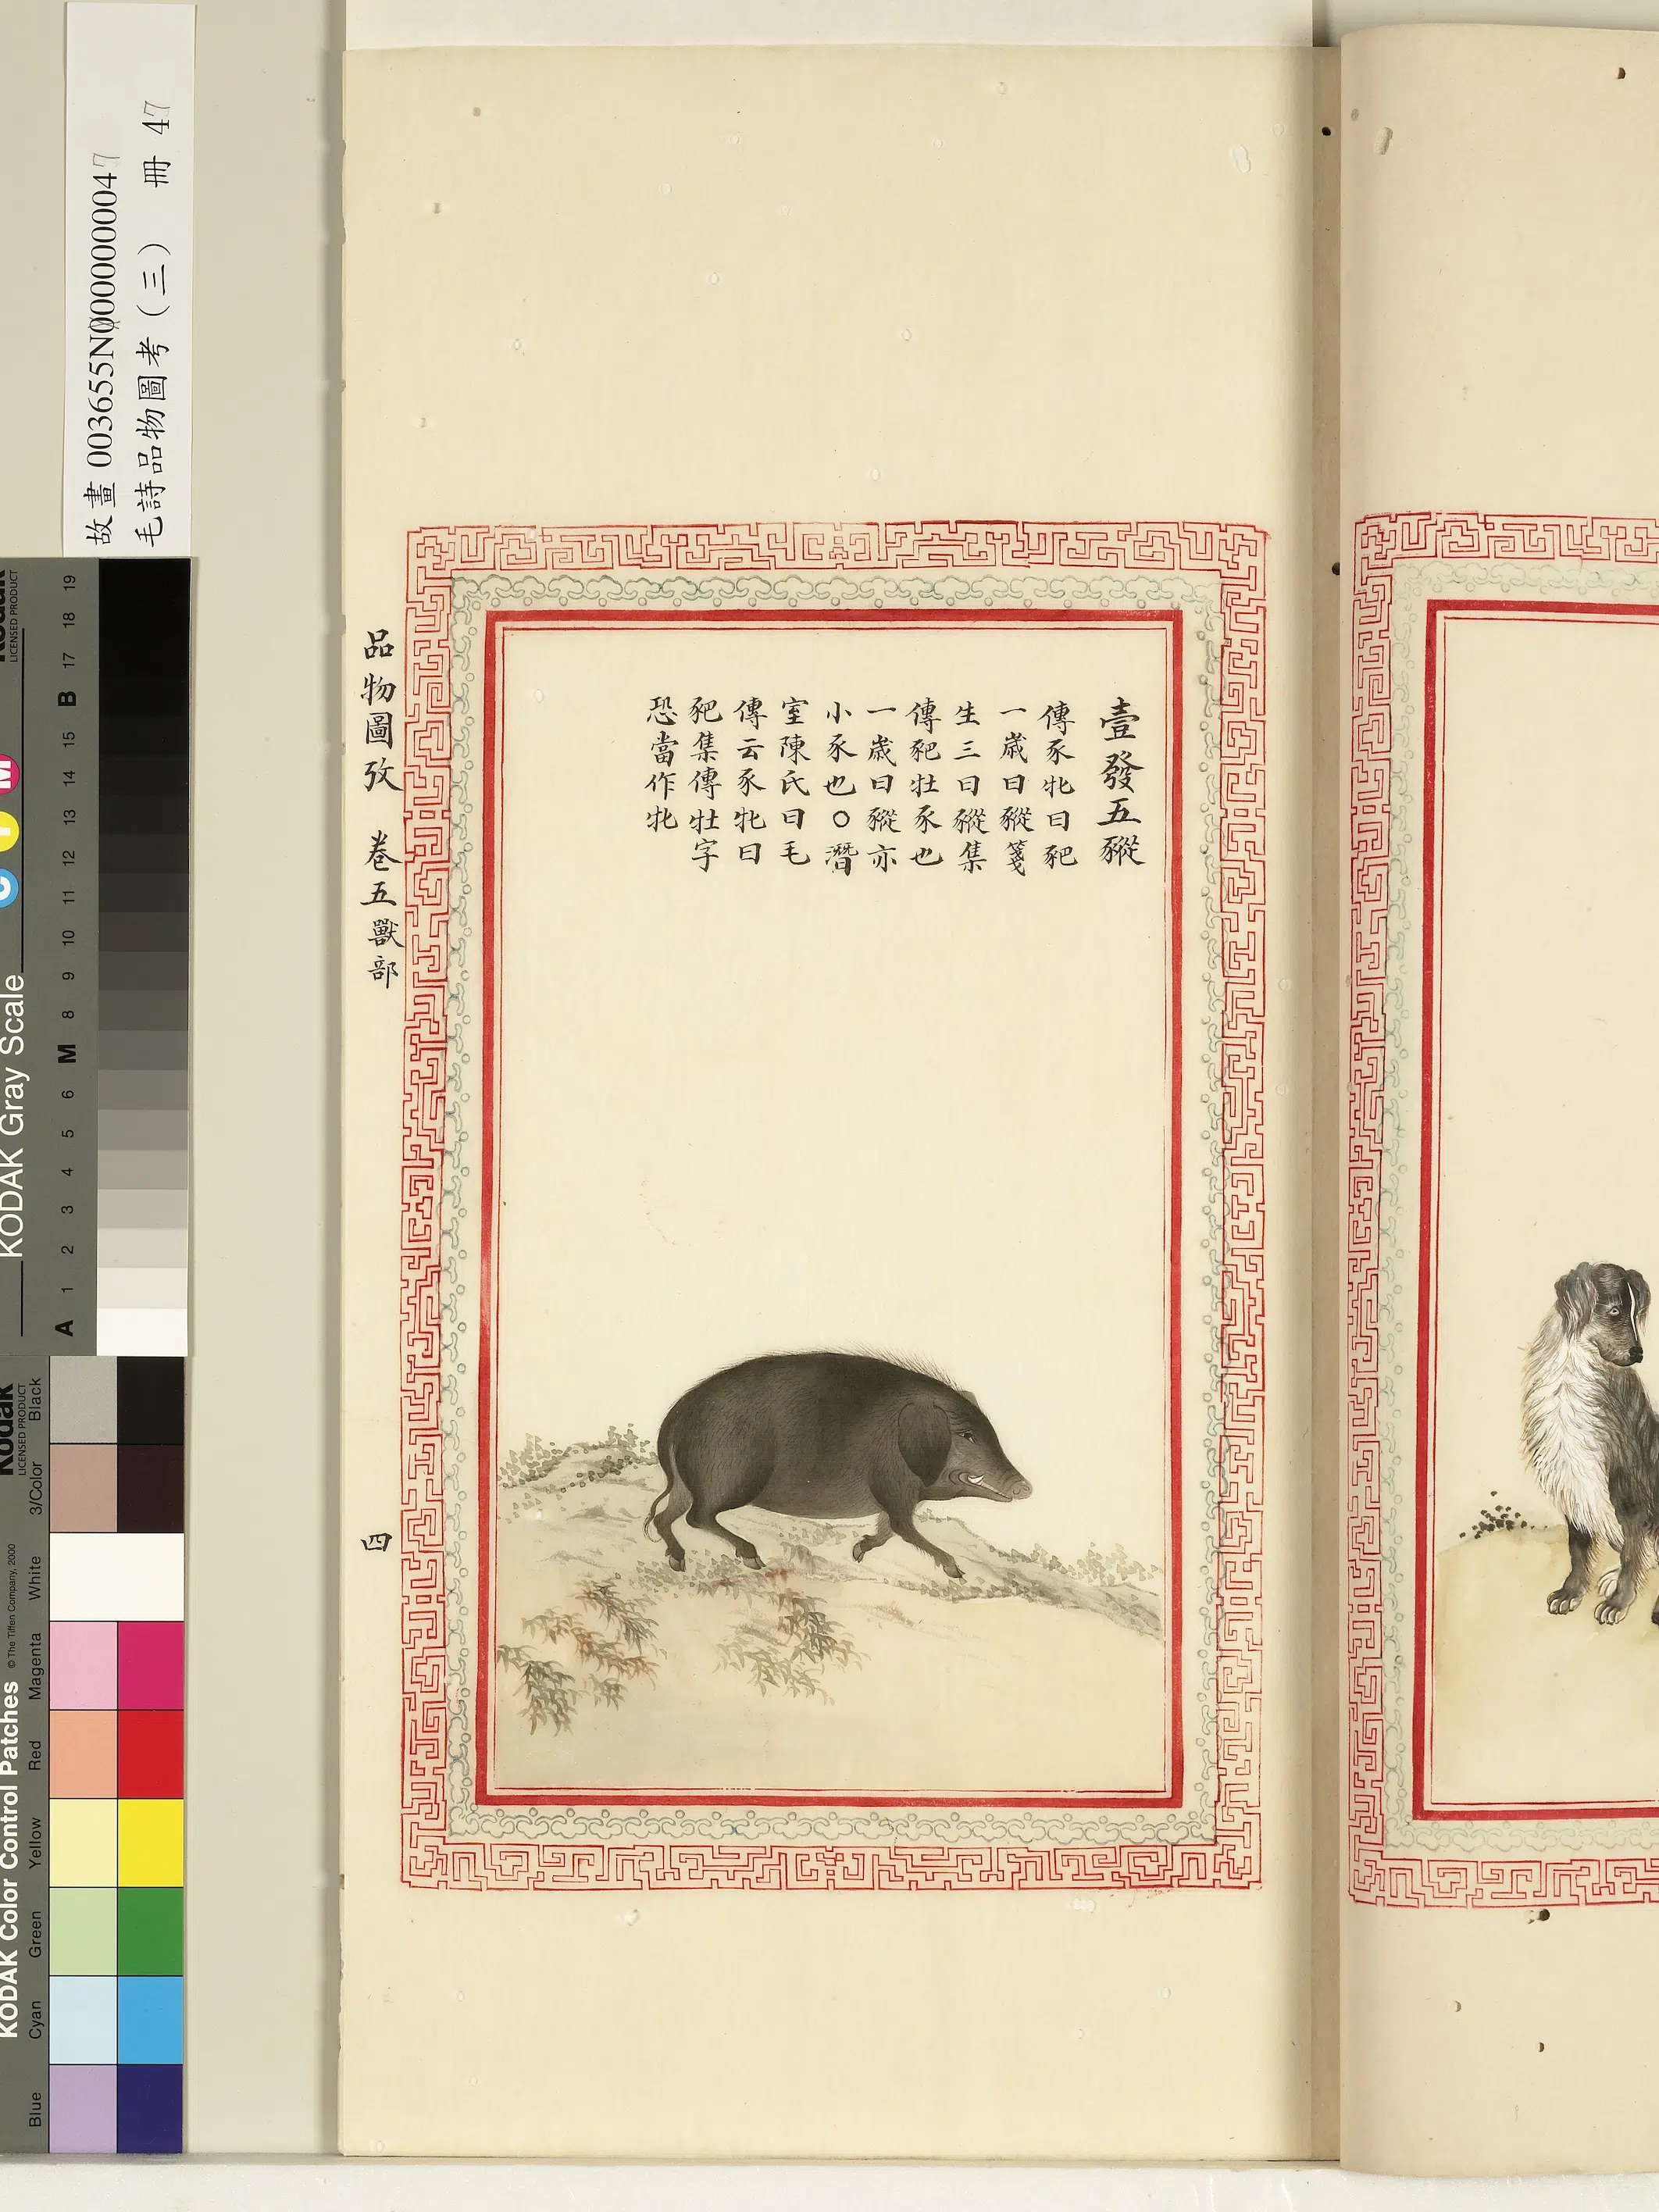 壹發五豵
傳豕牝曰豝
一歲曰豵箋
生三曰豵集
傳豝牡豕也
一歲曰豵亦
小豕也○潛
室陳氏曰毛
傳云豕牝曰
豝集傳牡字
恐當作牝
品物圖攷 卷五獸部 四
故畫 003655N000000047
毛詩品物圖考（三） 冊 47
KODAK Gray Scale
Kodak
LICENSED PRODUCT
C Y M
A 1 2 3 4 5 6 M 8 9 10 11 12 13 14 15 B 17 18 19
KODAK Color Control Patches
© The Tiffen Company, 2000
Kodak
LICENSED PRODUCT
Blue Cyan Green Yellow Red Magenta White 3/Color Black